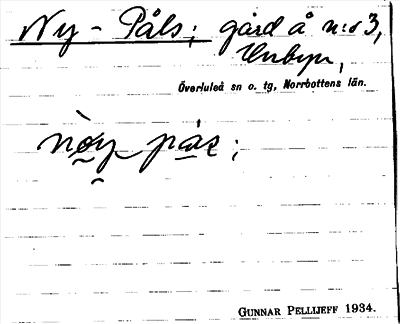 Ny - Påls; gård å n:o 3,
Unbyn,
Överluleå sn o. tg, Norrbottens län.
GUNNAR PELLIJEFF 1934.